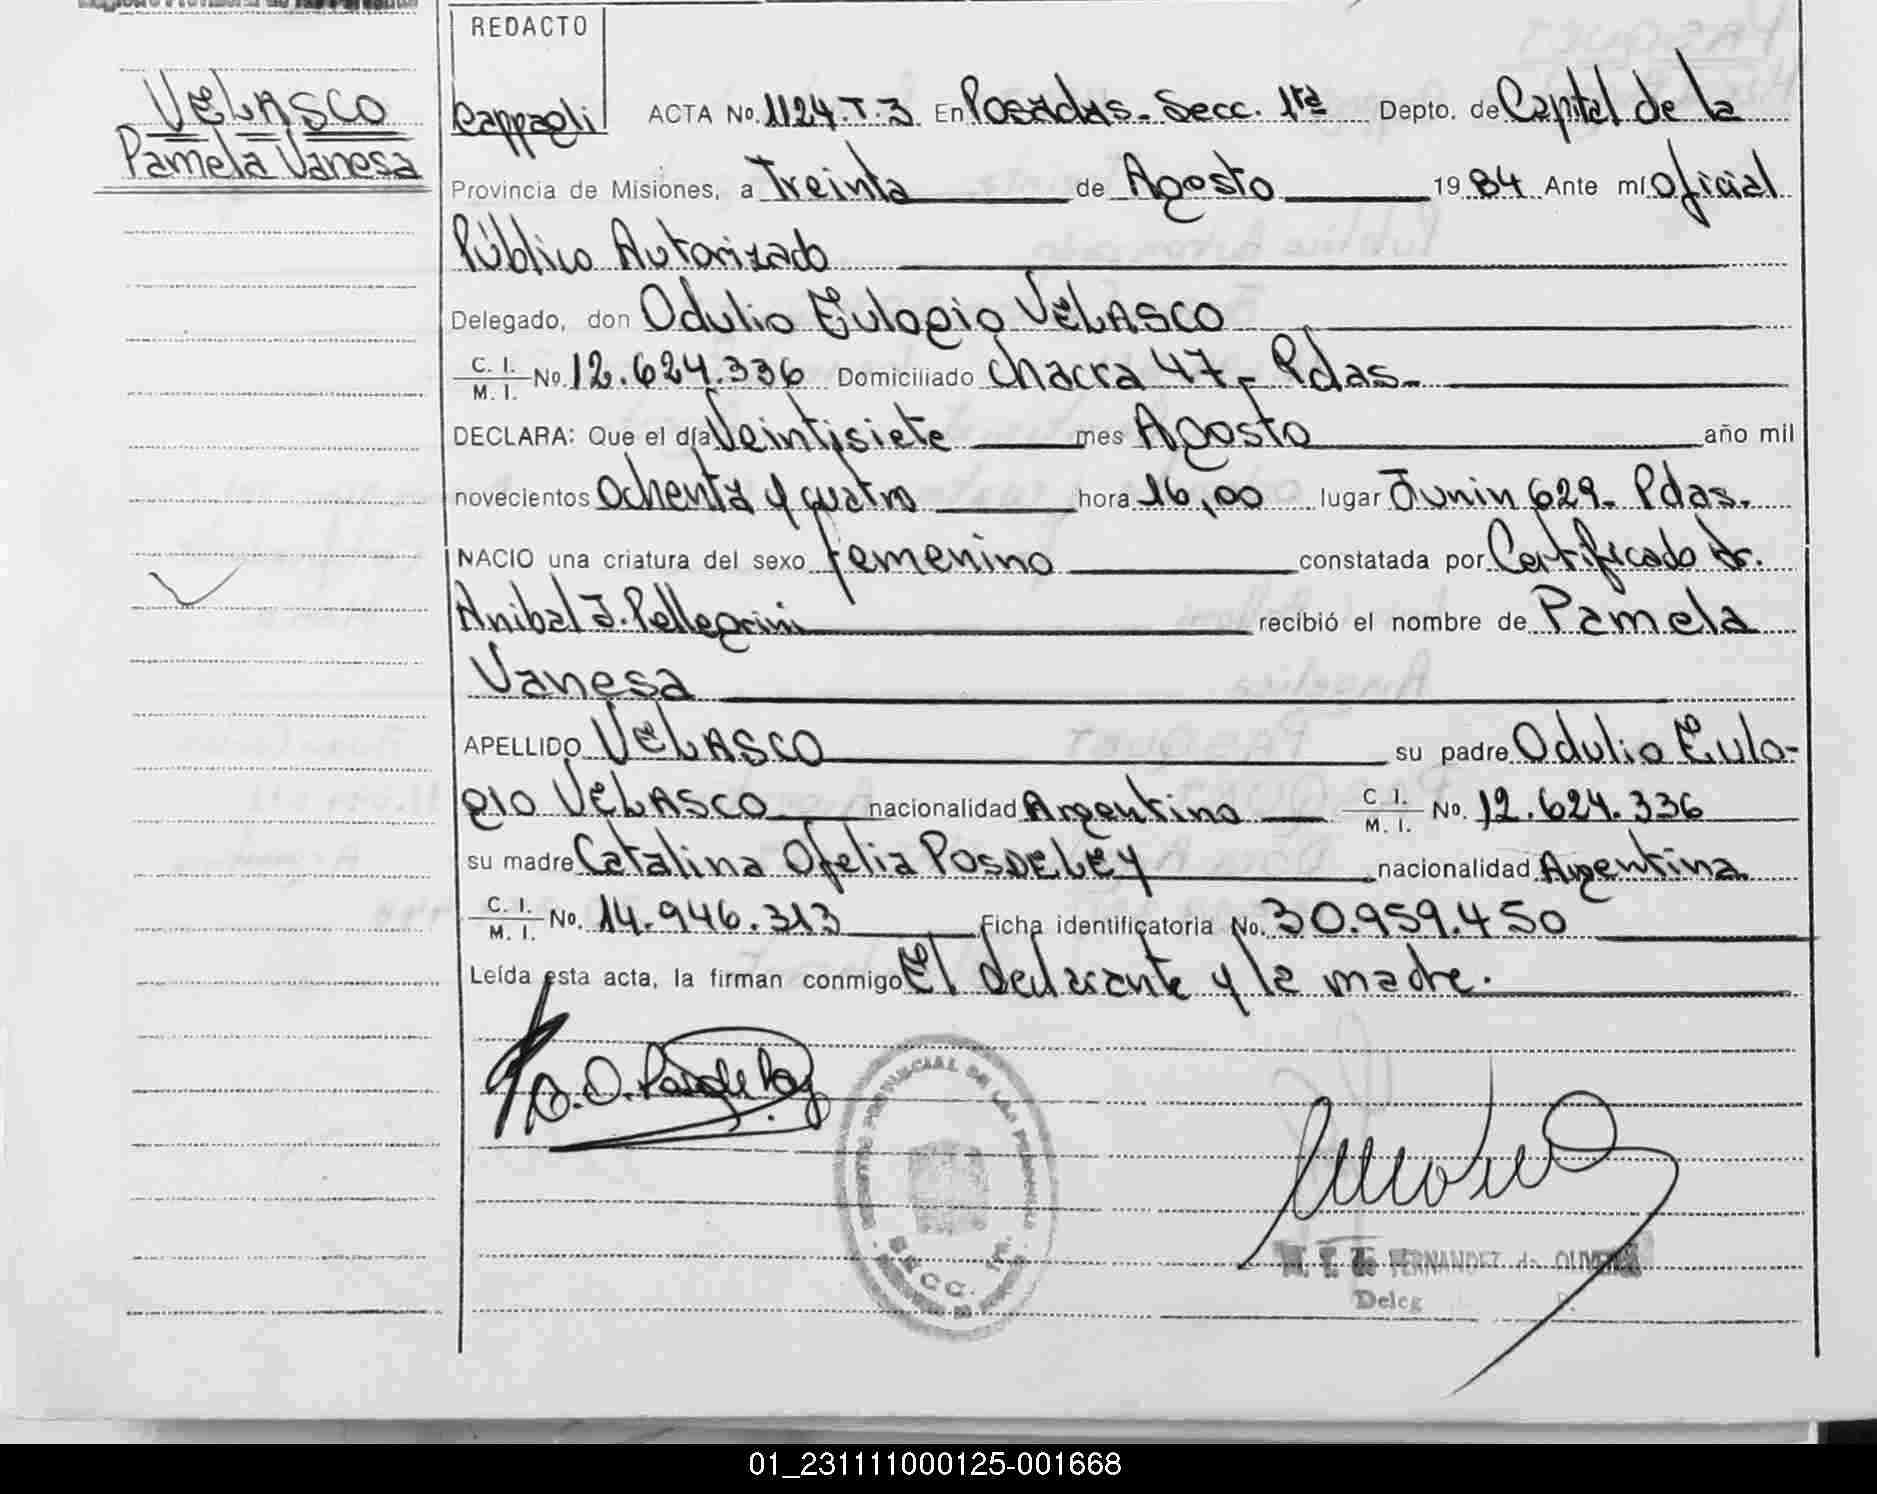 REDACTO
VELASCO
Pamela Vanesa
Cappagli
ACTA No. 1124.T.3 En Posadas. Secc. 1ra Depto. de Capital de la
Provincia de Misiones, a Treinta de Agosto 1984 Ante mí Oficial
Público Autorizado
Delegado, don Odulio Eulogio VELASCO
C. I.
M. I. No. 12.624.336 Domiciliado Chacra 47- Pdas.
DECLARA: Que el día Veintisiete mes Agosto año mil
novecientos Ochenta y cuatro hora 16,00 lugar Junin 629- Pdas.
NACIO una criatura del sexo femenino constatada por Certificado Dr.
Anibal J. Pellegrini recibió el nombre de Pamela
Vanesa
APELLIDO VELASCO su padre Odulio Eulo-
gio VELASCO nacionalidad Argentino C. I. M. I. No. 12.624.336
su madre Catalina Ofelia POSDELEY nacionalidad Argentina
C. I.
M. I. No. 14.946.313 Ficha identificatoria No. 30.959.450
Leída esta acta, la firman conmigo El declarante y la madre.
PROVINCIAL DE LAS PERSONAS
SECC. 1ra.
FERNANDEZ de OLIVEIRA
Deleg
01_231111000125-001668